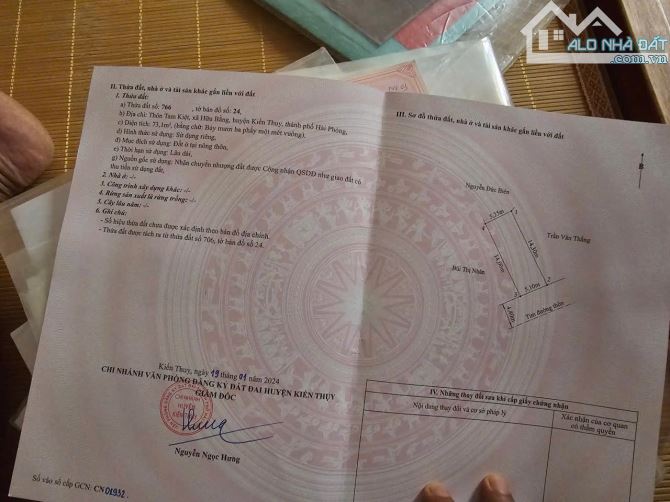 ALO NHÀ ĐẤT
.com.vn
II. Thửa đất, nhà ở và tài sản khác gắn liền với đất
1. Thửa đất:
a) Thửa đất số: 766 , tờ bản đồ số: 24,
b) Địa chỉ: Thôn Tam Kiệt, xã Hữu Bằng, huyện Kiến Thụy, thành phố Hải Phòng,
c) Diện tích: 73,1m², (bằng chữ: Bảy mươi ba phẩy một mét vuông),
d) Hình thức sử dụng: Sử dụng riêng,
đ) Mục đích sử dụng: Đất ở tại nông thôn,
e) Thời hạn sử dụng: Lâu dài,
g) Nguồn gốc sử dụng: Nhận chuyển nhượng đất được Công nhận QSDĐ như giao đất có
thu tiền sử dụng đất,
2. Nhà ở: -/-
3. Công trình xây dựng khác: -/-
4. Rừng sản xuất là rừng trồng: -/-
5. Cây lâu năm: -/-
6. Ghi chú:
- Số hiệu thửa đất chưa được xác định theo bản đồ địa chính.
- Thửa đất được tách ra từ thửa đất số 706, tờ bản đồ số 24.
Kiến Thụy, ngày 19 tháng 01 năm 2024
CHI NHÁNH VĂN PHÒNG ĐĂNG KÝ ĐẤT ĐAI HUYỆN KIẾN THỤY
GIÁM ĐỐC
CHI NHÁNH
HUYỆN
KIẾN THỤY
Nguyễn Ngọc Hưng
Số vào sổ cấp GCN: CN 01932.
III. Sơ đồ thửa đất, nhà ở và tài sản khác gắn liền với đất
B
Nguyễn Đức Biên
5,15m
1
Trần Văn Thắng
14,30m
14,00m
Bùi Thị Nhàn
5,10m
2
3
4,40m
Tim đường thôn
IV. Những thay đổi sau khi cấp giấy chứng nhận
Nội dung thay đổi và cơ sở pháp lý
Xác nhận của cơ quan
có thẩm quyền